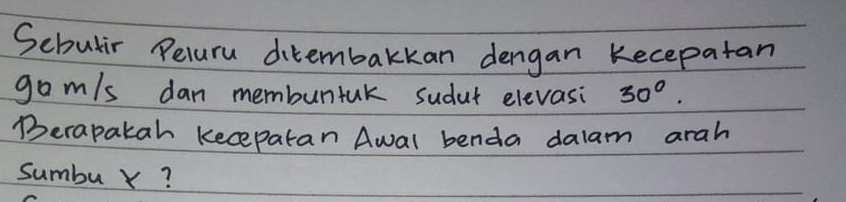 Sebutir Peluru ditembakkan dengan Kecepatan
90 m/s dan membuntuk sudut elevasi 30°.
Berapakah Kecepatan Awal benda dalam arah
Sumbu ?